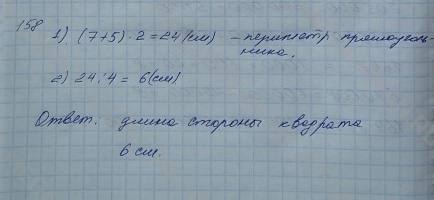 158
1) (7+5) · 2 = 24 (см) – периметр прямоуголь-
ника.
2) 24 : 4 = 6 (см)
Ответ. длина стороны квадрата
6 см.